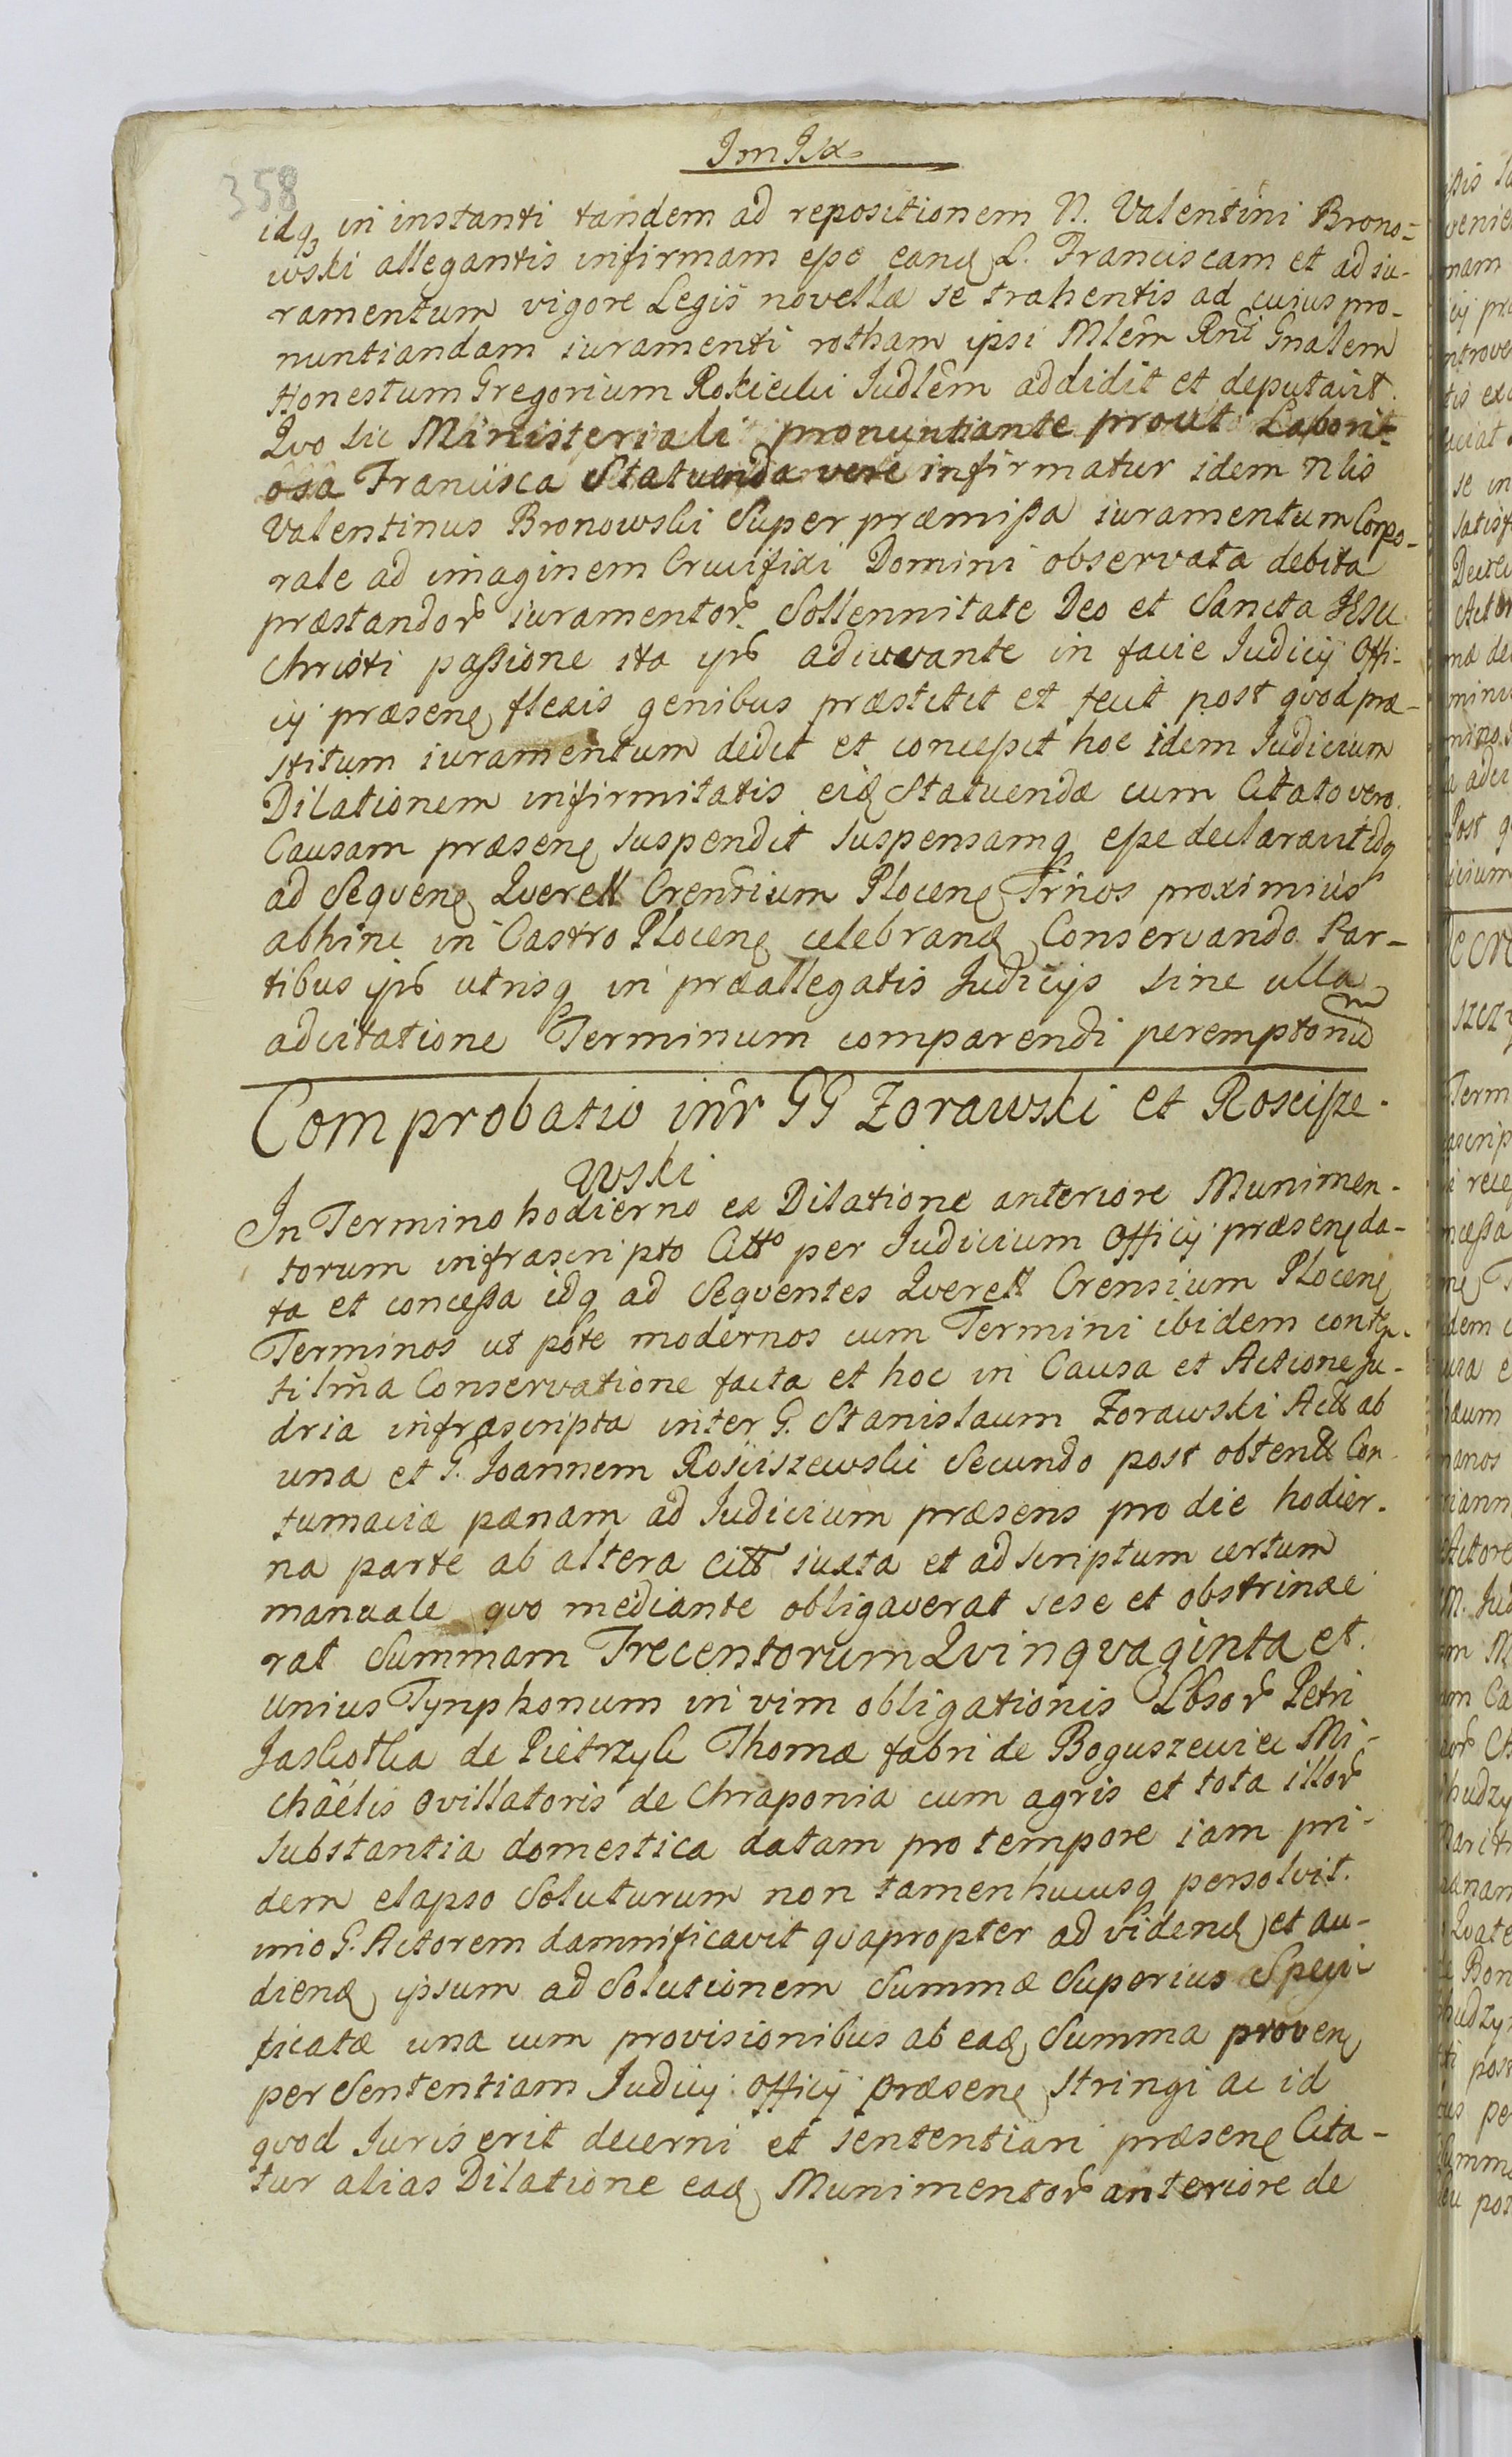 358
idq₃ in instanti tandem ad repositionem N. Valentini Brono=
wski allegantis infirmam esse eand L. Franciscam et ad iu-
ramentum vigore Legis novellæ se trahentis ad cuius pro-
nuntiandam iuramenti rotham ipsi Mlem Rni Gnalem
Honestum Gregorium Rokicki Judlem addidit et deputavit.
Qvo sic Ministeriali pronuntiante prout Labori=
osa Francisca Statuenda vere infirmatur idem Nlis
Valentinus Bronowski Super præmissa iuramentum Corpo-
rale ad imaginem Crucifixi Domini observata debita
præstandor iuramentor Sollennitate Deo et Sancta JESU
Christi passione ita ips adiuvante in facie Judicij Offi-
cij præsen flexis genibus præstitit et fecit post qvod præ-
stitum iuramentum dedit et concepit hoc idem Judicium
Dilationem infirmitatis eid Statuendæ cum Citato vero
Causam præsen suspendit suspensamq esse declaravit idq
ad Seqven Qverell Crensium Plocen Trnos proximius
abhinc in Castro Plocen celebrand Conservando Par-
tibus ips utrisq in præallegatis Judicijs sine ulla
adcitatione Terminum comparendi peremptorium
Comprobatio inr GG Zorawski et Roscisze-
wski
In Termino hodierno ex Dilatione anteriore Munimen-
torum infrascripto Citto per Judicium Officij præsen da-
ta et concessa idq ad Seqventes Qverell Crensium Plocen
Terminos ut pote modernos cum Termini ibidem
Conservatione facta et hoc in Causa et Actione Ju-
dria infrascripta inter G. Stanislaum Zorawski Act ab
una et G. Joannem Rosciszewski Secundo post obtent Con-
tumaciæ pænam ad Judicium præsens pro die hodier-
na parte ab altera Citt iuxta et ad scriptum certum
manuale qvo mediante obligaverat sese et obstrinxe
rat Summam Trecentorum Qvinqvaginta et
unius Tynphonum in vim obligationis Lbsor Petri
Jaskotka de Pietrzyk Thomæ fabri de Boguszewice Mi-
chäelis ovillatoris de Chraponia cum agris et tota illor
substantia domestica datam pro tempore iam pri-
dem elapso Soluturum non tamen hucusq persolvit.
imo G. Actorem damnificavit qvapropter ad vidend et au-
diend ipsum ad Solutionem Summæ Superius Speci-
ficatæ una cum provisionibus ab ead Summa proven
per Sententiam Judicij Officij præsen stringi ac id
qvod Juris erit decerni et sententiari præsen Cita-
tur alias Dilatione ead Munimentor anteriore de